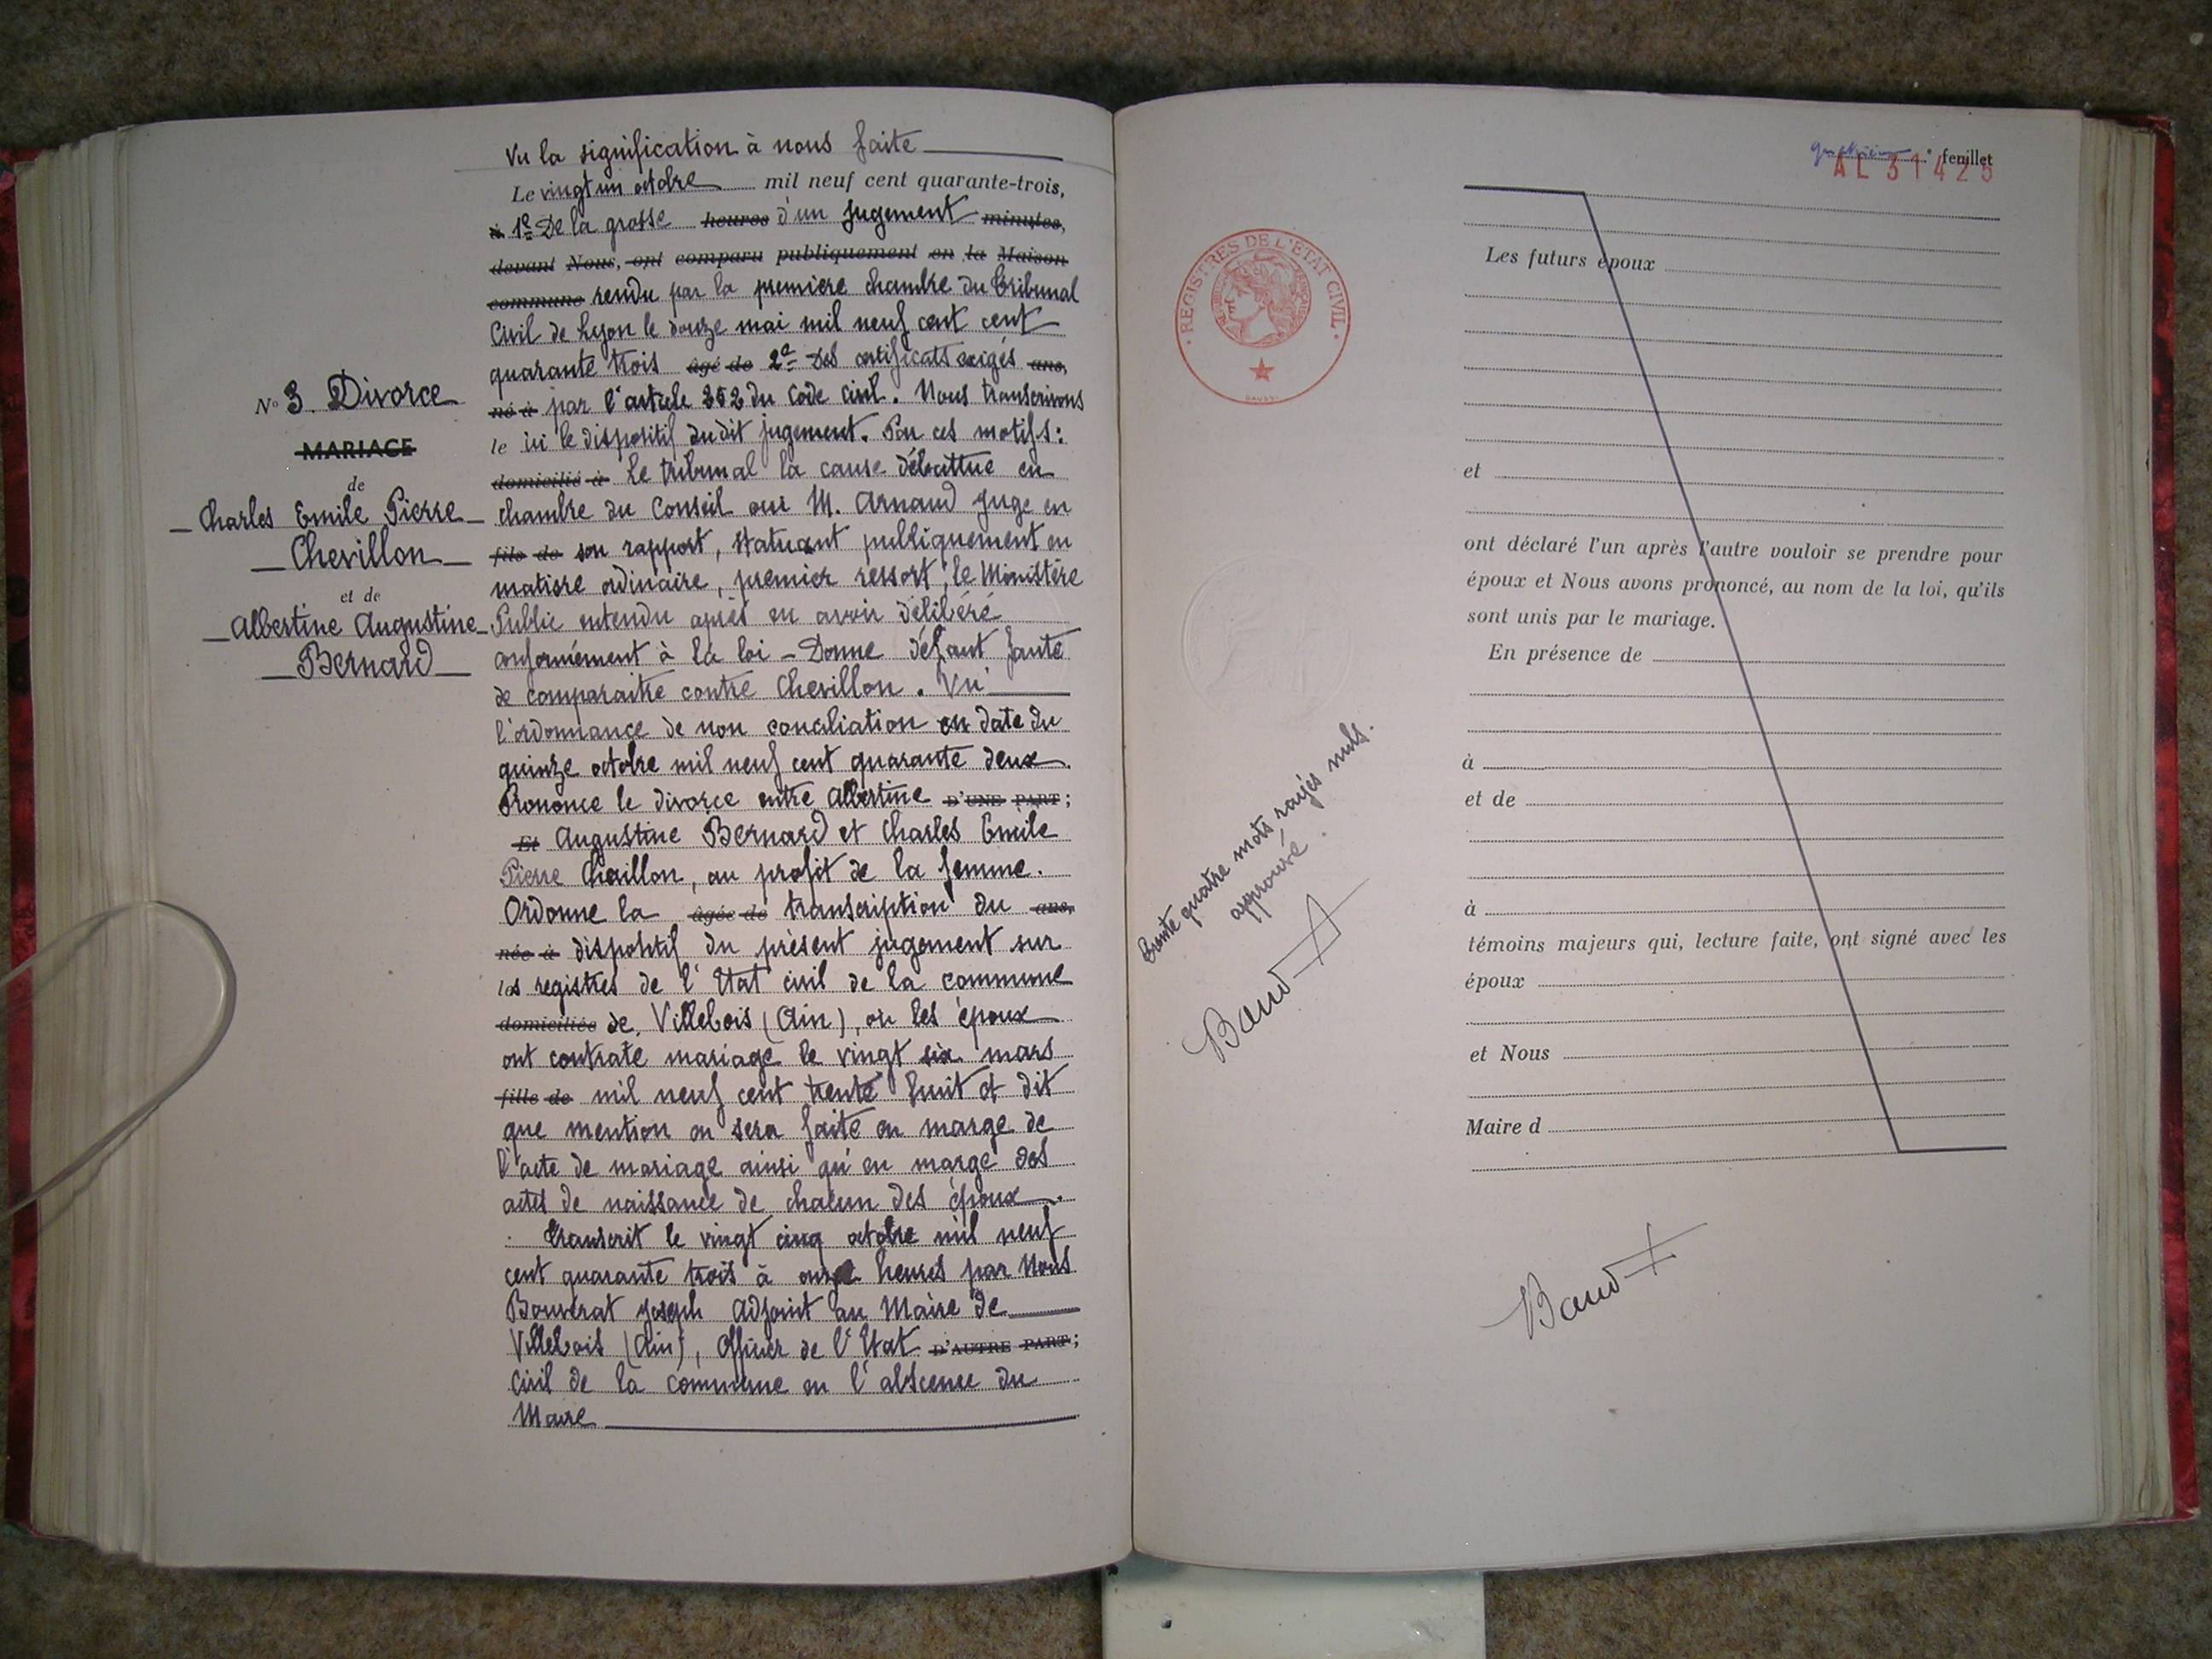 Vu la signification à nous faite
Le vingt un octobre mil neuf cent quarante-trois,
à 1º De la grosse heures d'un jugement minutes,
devant Nous, ont comparu publiquement en la Maison
commune rendu par la première chambre du Tribunal
Civil de Lyon le douze mai mil neuf cent cent
quarante trois âgé de 2º Des certificats exigés ans,
né à par l'article 252 du Code Civil. Nous transcrivons
le ici le dispositif dudit jugement. Par ces motifs :
domicilié à Le tribunal la cause débattue en
chambre du Conseil oui M. Arnaud Juge en
fils de son rapport, statuant publiquement en
matière ordinaire, premier ressort, le Ministère
Public entendu après en avoir délibéré
conformément à la loi - Donne défaut faute
de comparaitre contre Chevillon. Vu
l'ordonnance de non conciliation en date du
quinze octobre mil neuf cent quarante deux.
Prononce le divorce entre Albertine D'UNE PART ;
Et Augustine Bernard et Charles Emile
Pierre Chaillon, au profit de la femme.
Ordonne la âgée de transcription du ans,
née à dispositif du présent jugement sur
les registres de l'Etat civil de la commune
domiciliée de Villebois (Ain), où les époux
ont contraté mariage le vingt six mars
fille de mil neuf cent trente huit et dit
que mention en sera faite en marge de
l'acte de mariage ainsi qu'en marge des
actes de naissance de chacun des époux.
Transcrit le vingt cinq octobre mil neuf
cent quarante trois à onze heures par Nous
Bouvrat Joseph Adjoint au Maire de
Villebois (Ain), Officier de l'Etat D'AUTRE PART ;
Civil de la commune en l'abscence du
Maire
Nº 3 Divorce
MARIAGE
de
Charles Emile Pierre
Chevillon
et de
Albertine Augustine
Bernard
feuillet
AL 31425
REGISTRES DE L'ETAT CIVIL
Les futurs époux
et
ont déclaré l'un après l'autre vouloir se prendre pour
époux et Nous avons prononcé, au nom de la loi, qu'ils
sont unis par le mariage.
En présence de
à
et de
à
témoins majeurs qui, lecture faite, ont signé avec les
époux
et Nous
Maire d
Trente quatre mots rayés nuls.
approuvé.